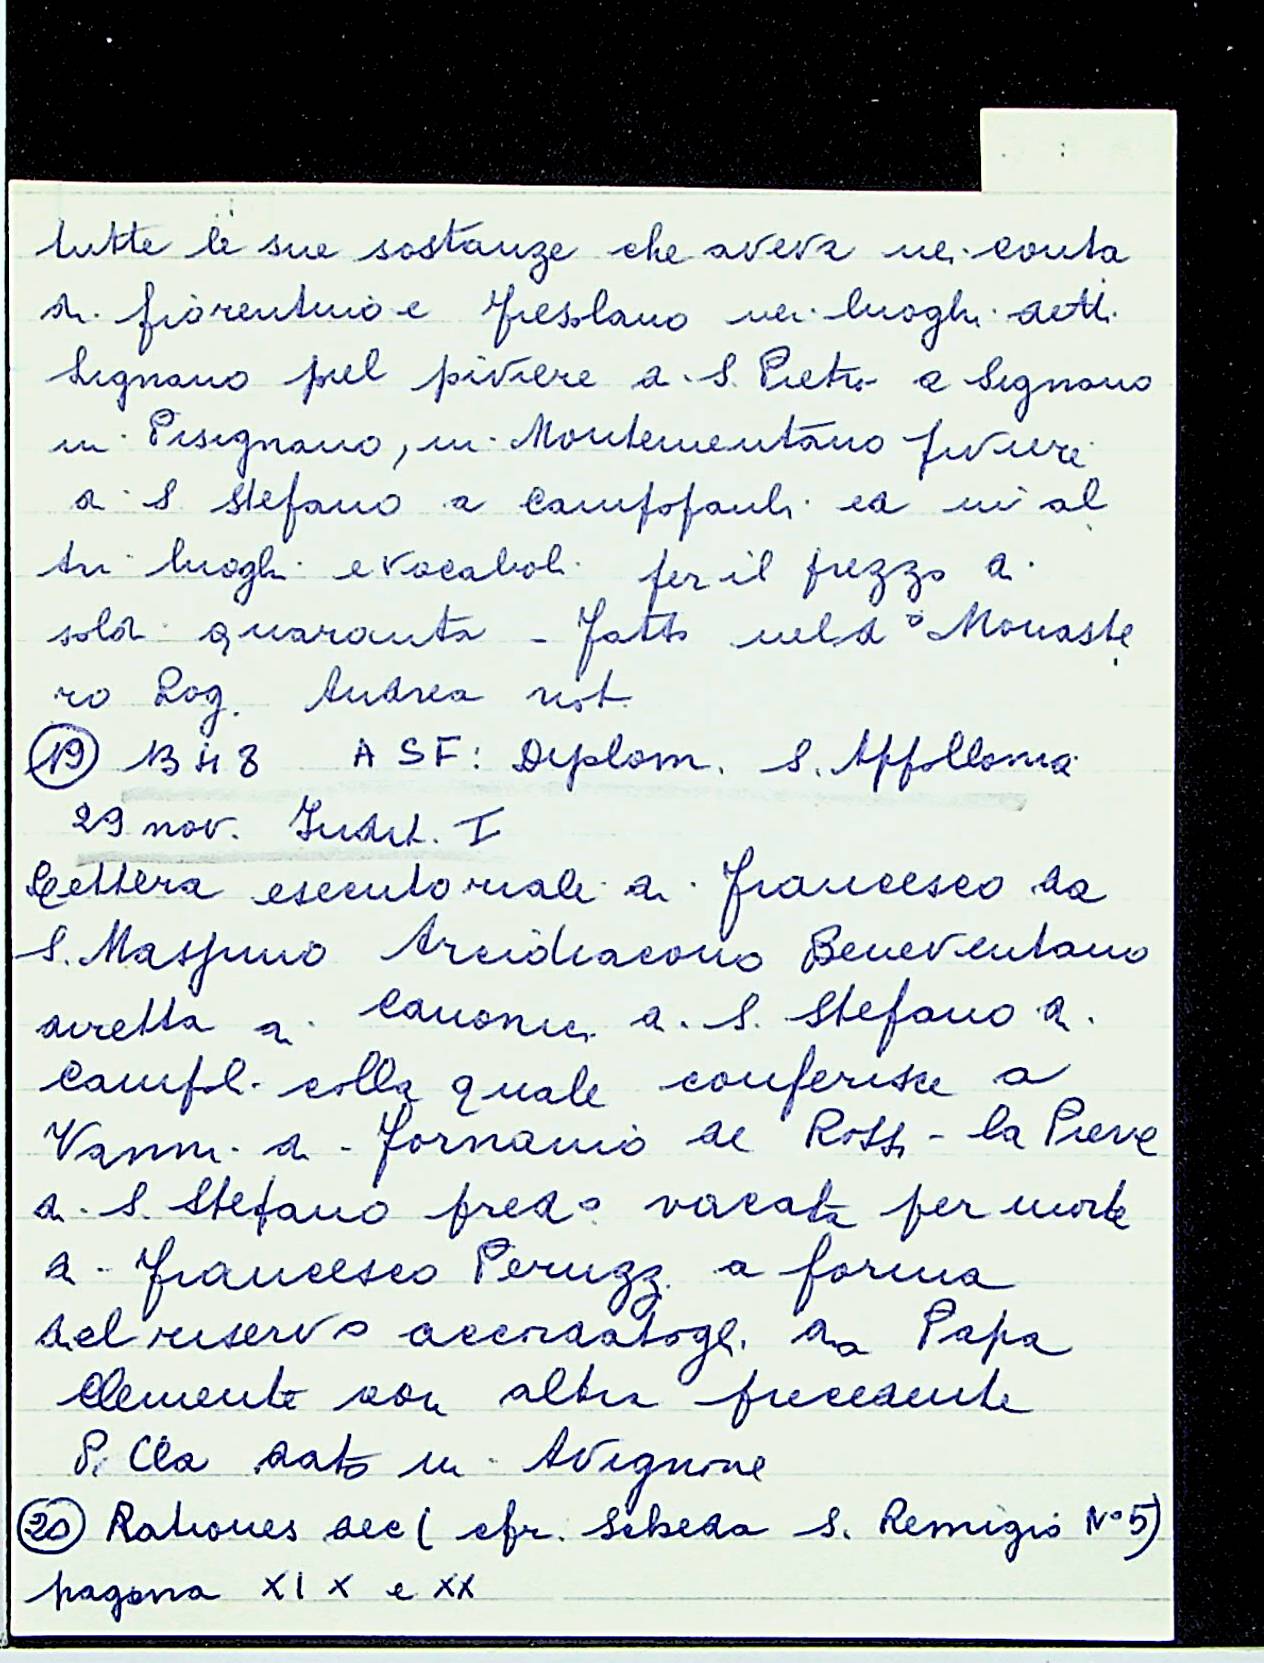 tutte le sue sostanze che aveva nei conta
di fiorentino e Fiesolano nei luoghi detti
Signano pel piviere di S. Pietro a Signano
in Pisignano, in Montementano piviere
di S Stefano a Campopauli ed in al
tri luoghi e vocaboli per il prezzo di
soldi quaranta - Fatto nel do Monaste
ro Rog. Andrea not.
(19) 1348 ASF: Diplom. S. Appollonia
29 nov. Indit. I
Lettera esecutoriale di Francesco da
S. Massimo Arcidiacono Beneventano
diretta ai Canonici di S. Stefano di
Campoli colla quale conferisce a
Vanni di Fornaino de Rossi - la Pieve
di S. Stefano predo vacata per morte
di Francesco Peruzzi a forma
del riservo accordatogli da Papa
Clemente con altra precedente
P. Cla dato in Avignone
(20) Rationes dec ( cfr. Scheda S. Remigio No 5)
pagina XIX e XX